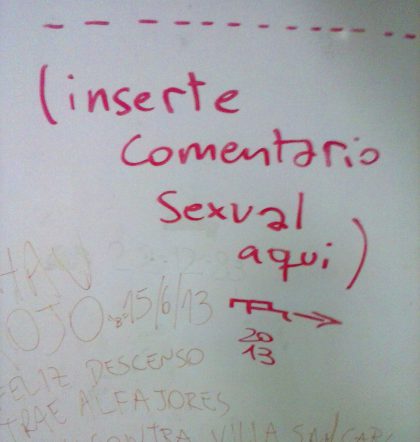 (inserte
comentario
sexual
aqui)
15/6/13
OJO
20
13
FELIZ DESCENSO
TRAE ALFAJORES
CONTRA VILLA